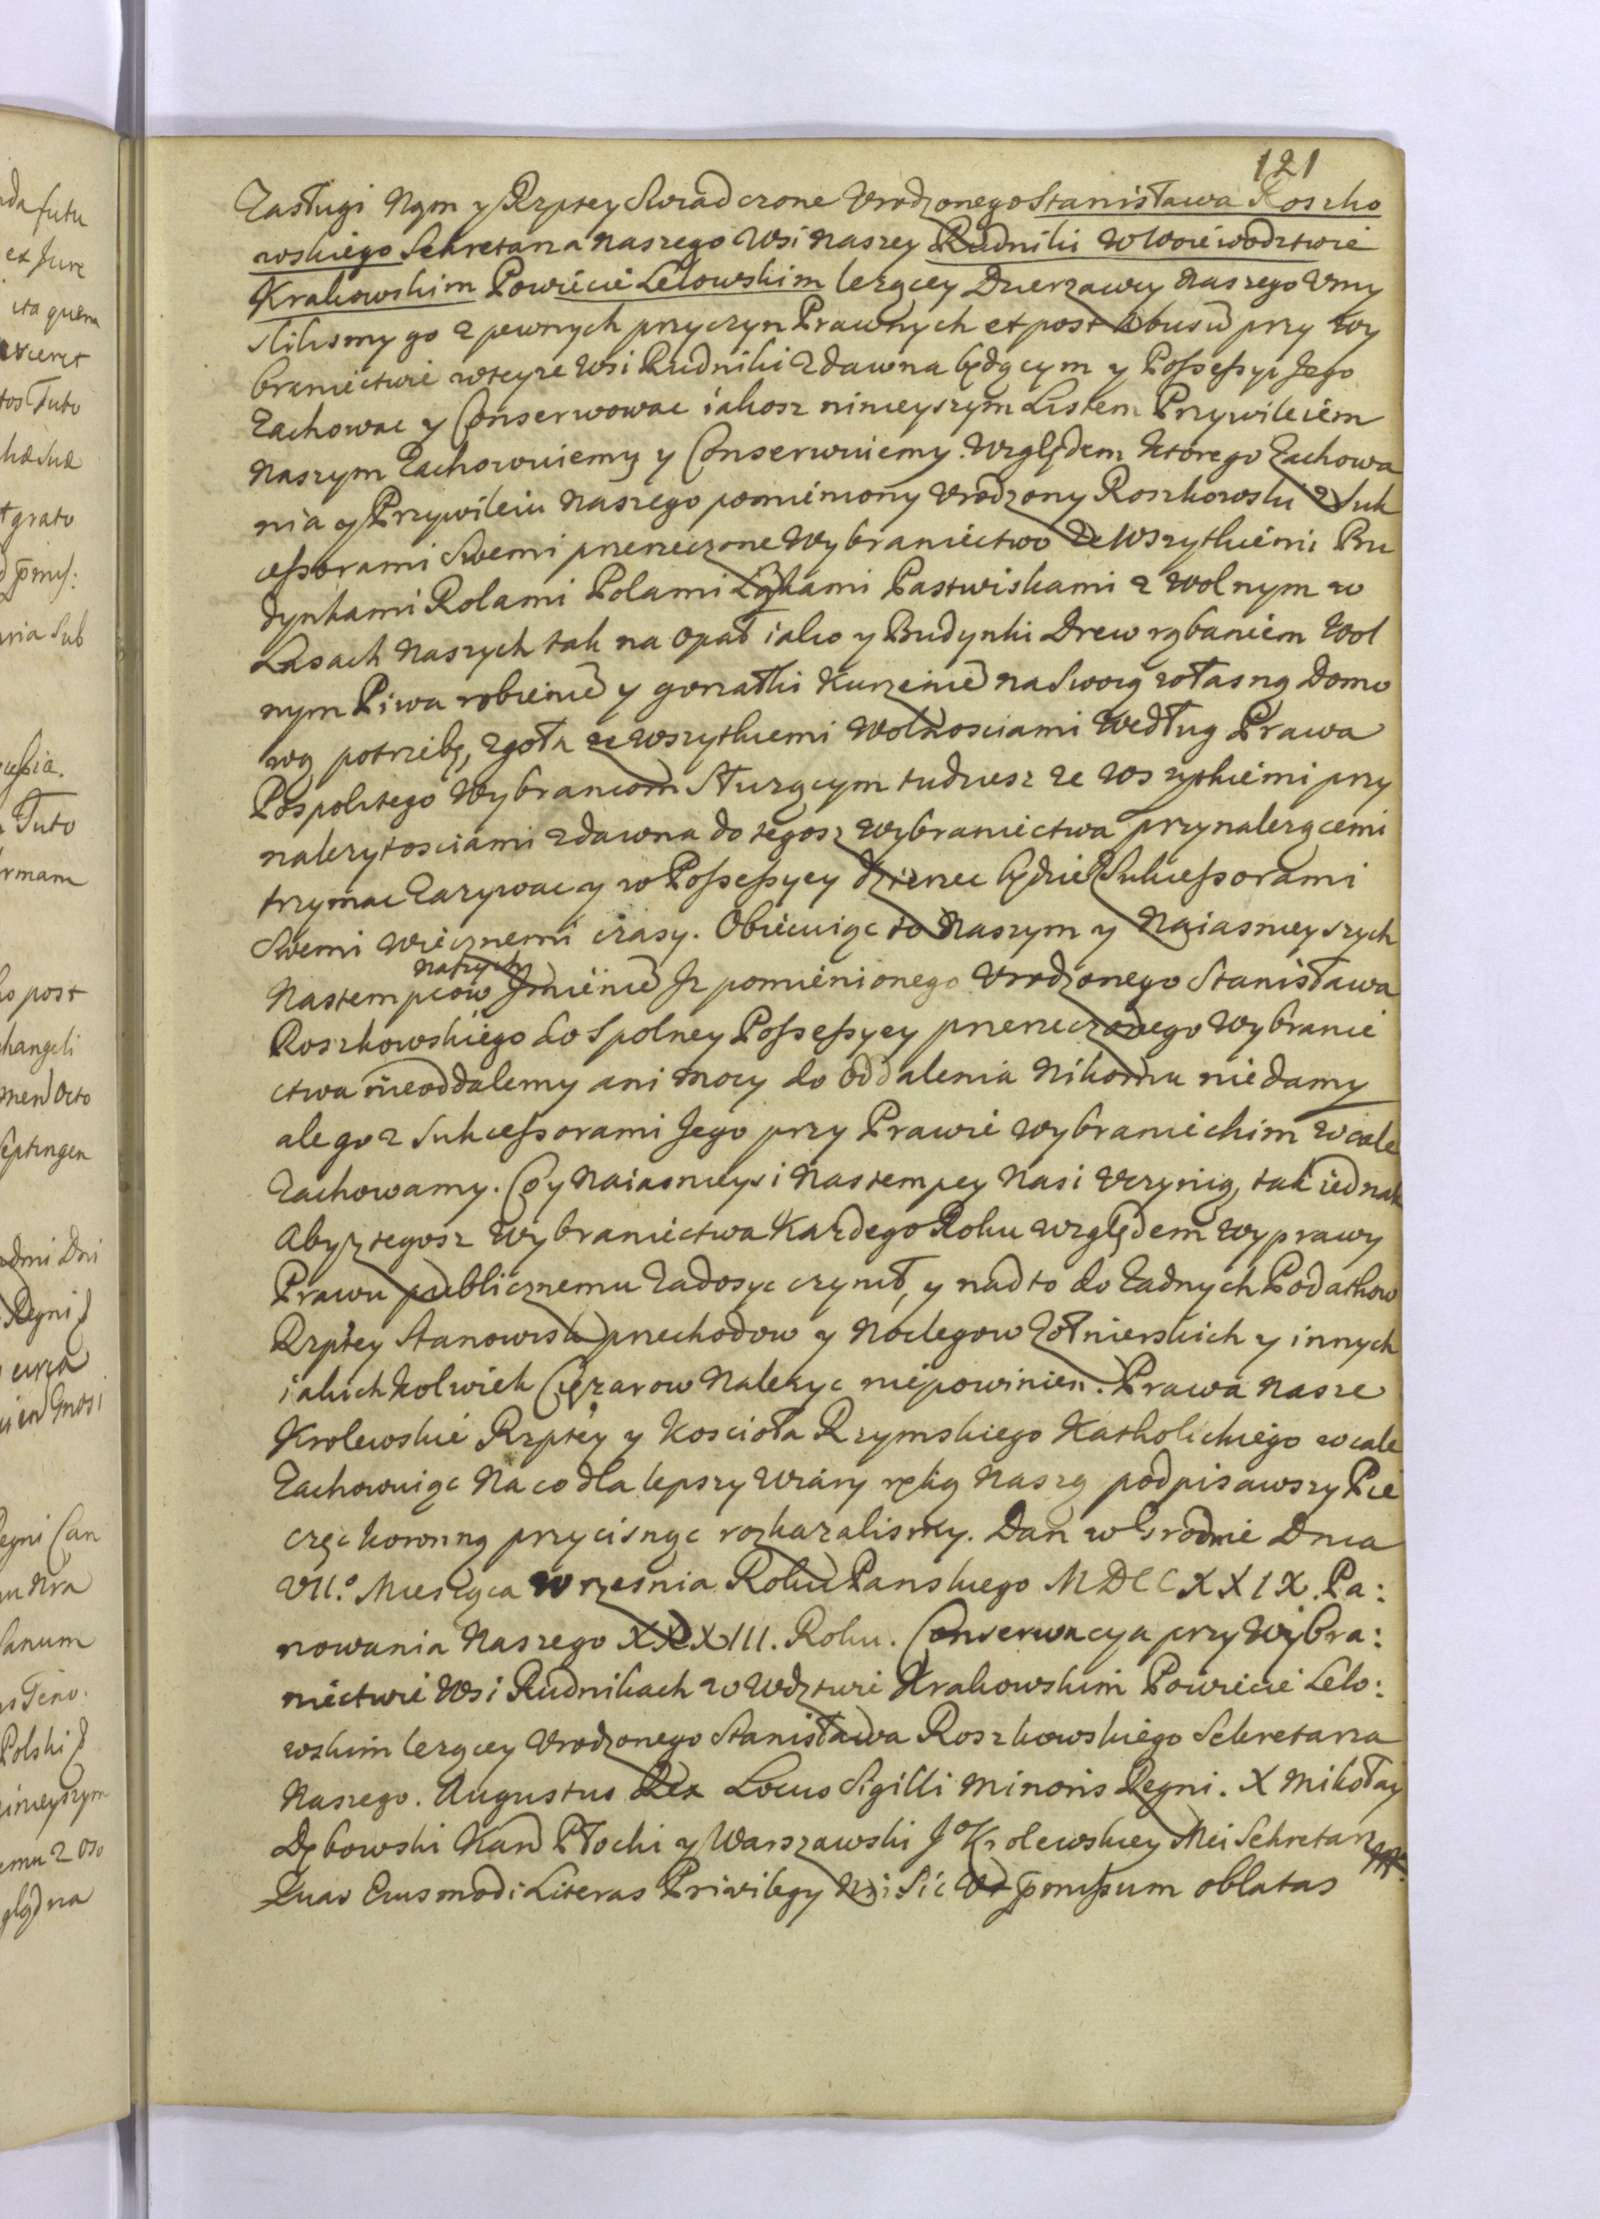 121
Zasługi Nąm y Rzptey Swiadczone Urodzonego Stanisława Roszko
wskiego Sekretarza Naszego Wsi Naszey Rudniki w Woiewodztwie
Krakowskim Powiecie Lelowskim lezącey Dzierzawcy Naszego Umy
slilismy go z pewnych przyczyn Prawnych et post Abusu przy Wy
braniectwie w teyze Wsi Rudniki z dawna będącym y Possessyi Jego
Zachowac y Conserwowac iakosz ninieyszym Listem Przywileiem
Naszym Zachowuiemy y Conserwuiemy. Względem Ktorego Zachowa
nia y Przywileiu Naszego pomieniony Urodzony Roszkowski z Suk
cessorami Swemi przerzeczone Wybraniectwo ze Wszytkiemi Bu
dynkami Rolami Polami Łąkami Pastwiskami z Wolnym w
Lasach Naszych tak na Opał iako y Budynki Drew rąbaniem Wol
nym Piwa robieniem y gorzałki Kurzeniem na Swoią własną Domo
wą potrzebę, zgoła ze wszytkiemi Wolnosciami Według Prawa
Pospolitego Wybrancom Słuzącym tudziesz ze Wszytkiemi przy
nalezytosciami z dawna do tegosz Wybraniectwa przynalezącemi
trzymac Zazywac y w Possessyey dzierzec będzie z Sukcessorami
Swemi Wiecznemi czasy. Obiecuiąc to Naszym y Naiasnieyszych
Naszych
Nastempcow Jmieniem Jz pomienionego Urodzonego Stanisława
Roszkowskiego do Spolney Possessyey przerzeczonego Wybranie
ctwa nieoddalemy ani mocy do oddalenia Nikomu niedamy
ale go z Sukcessorami Jego przy Prawie Wybranieckim w cale
Zachowamy. Co y Naiasnieysi Nastempcy Nasi Uczynią, tak iednak
Aby z tegosz Wybraniectwa Kazdego Roku względem Wyprawy
Prawu publicznemu Zadosyc czynił, y nad to do Zadnych Podatkow
Rzptey Stanowisk przechodow y Noclegow Zołnierskich y innych
iakichkolwiek Cięzarow Nalezyc niepowinien. Prawa Nasze
Krolewskie Rzptey y Koscioła Rzymskiego Katholickiego w cale
Zachowuiąc Na co dla lepszy Wiary ręką Naszą podpisawszy Pie
częc koronną przycisnąc rozkazalismy. Dan w Grodnie Dnia
VII.o Miesiąca Wrzesnia Roku Panskiego MDCCXXIX. Pa:
nowania Naszego XXXIII. Roku. Conserwacya przy Wybra:
niectwie Wsi Rudnikach w Wdztwie Krakowskim Powiecie Lelo:
wskim lezącey Urodzonego Stanisława Roszkowskiego Sekretarza
Naszego. Augustus Rex Locus Sigilli Minoris Regni. X Mikołay
Dębowski Kan Płocki y Warszawski Jo Krolewskiey Mci Sekretarz
Quas Eiusmodi Literas Privilegy Nri Sic Ut pmissum oblatas